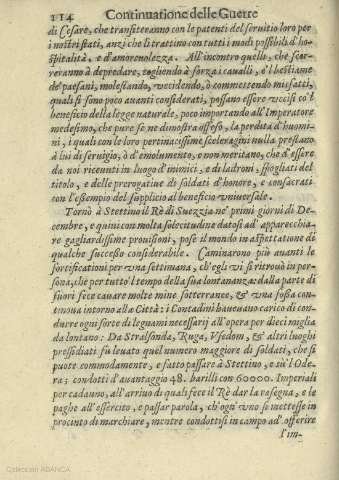 114 Continuatione delle Guerre
di Cesare, che transiteranno con le patenti del seruitio loro per
i nostri stati, anzi che li trattino con tutti i modi possibili d'ho-
spitalità, e d'amoreuolezza. All'incontro quelli, che scor-
reranno à depredare, togliendo à forza i caualli, e'l bestiame
de' paesani, molestando, vccidendo, ò commettendo misfatti,
quali si sono poco auanti considerati, possano essere vccisi co'l
beneficio della legge naturale, poco importando all'Imperatore
medesimo, che pure se ne dimostra offeso, la perdita d'huomi-
ni, i quali con le loro pertinacissime sceleragini nulla prestano
à lui di seruigio, ò d'emolumento, e non meritano, che d'essere
da noi riceuuti in luogo d'inimici, e di ladroni, spogliati del
titolo, e delle prerogatiue di soldati d'honore, e consacrati
con l'essempio del supplicio al beneficio vniuersale.
Tornò à Stettino il Rè di Suezzia ne' primi giorni di De-
cembre, e quini con molta solecitudine datosi ad apparecchia-
re gagliardissime prouisioni, pose il mondo in aspettatione di
qualche successo considerabile. Caminarono più auanti le
fortificationi per vna settimana, ch'egli vi si ritrouò in per-
sona, che per tutto'l tempo della sua lontananza: dalla parte di
fuori fece cauare molte mine sotterranee, & vna fossa con-
tinoua intorno alla Città: i Contadini haueuano carico di con-
durre ogni sorte di legnami necessarij all'opera per dieci miglia
da lontano: Da Stralsonda, Ruga, Vsedom, & altri luoghi
pressidiati fù leuato quel numero maggiore di soldati, che si
puote commodamente, e fatto passare à Stettino, e sù l'Ode-
ra; condotti d'auantaggio 48. barilli con 60000. Imperiali
per cadauno, all'arriuo di quali fece il Rè dar la rasegna, e le
paghe all'essercito, e passar parola, ch'ogn'vno se mettesse in
procinto di marchiare, mentre condottisi in campo ad'offerire
l'im-
Colección ABANCA